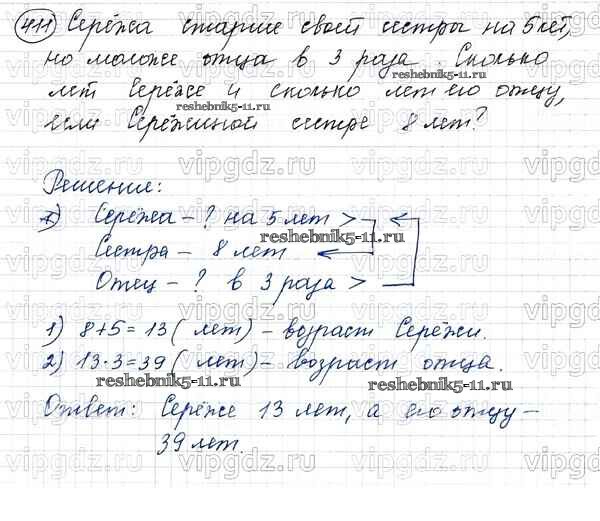 411 Серёжа старше своей сестры на 5 лет,
но моложе отца в 3 раза. Сколько
лет Серёже и сколько лет его отцу,
reshebnik5-11.ru
если Серёжиной сестре 8 лет?
Решение:
Серёжа - ? на 5 лет >
reshebnik5-11.ru
Сестра - 8 лет
Отец - ? в 3 раза >
1) 8+5=13 (лет) - возраст Серёжи.
2) 13·3=39 (лет) - возраст отца.
reshebnik5-11.ru reshebnik5-11.ru
Ответ: Серёже 13 лет, а его отцу -
39 лет.
vipgdz.ru